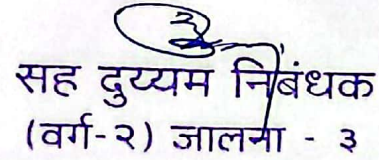 सह दुय्यम निबंधक
(वर्ग-२) जालना - ३